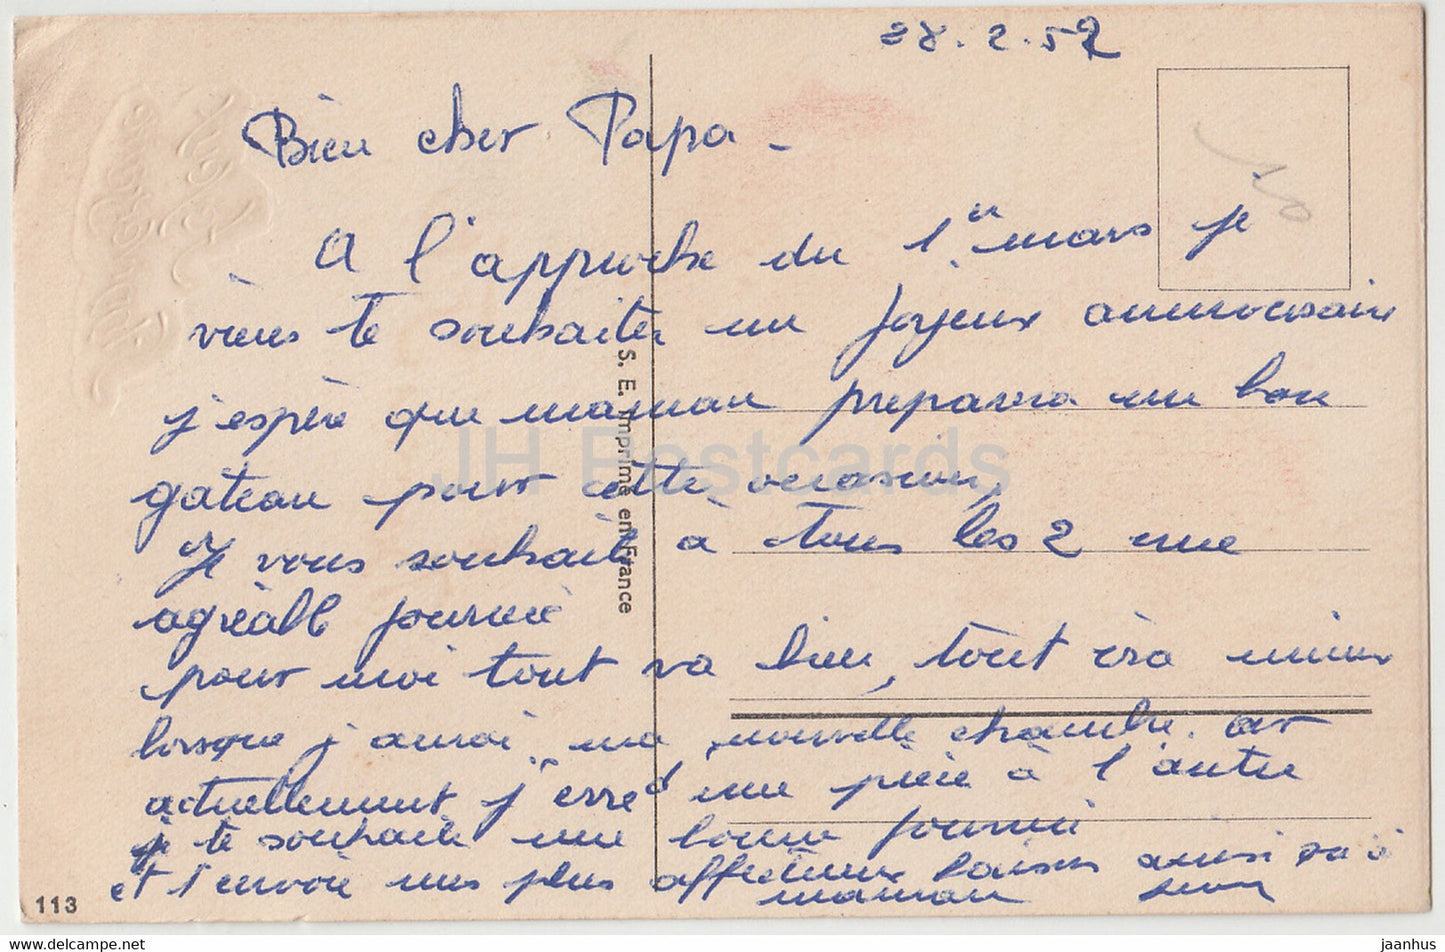 28.2.57
Bien cher Papa -
A l'approche du 1er mars je
viens te souhaiter un joyeux anniversaire
j'espère que maman preparera un bon
gateau pour cette occasion,
Je vous souhaite à tous les 2 une
agréable journée
pour moi tout va bien, tout ira mieux
lorsque j'aurai ma nouvelle chambre car
actuellement j'erre d'une pièce à l'autre
je te souhaite une bonne journée
et t'envoie mes plus affectueux baisers ainsi qu'à
maman
S. E. Imprimé en France
113
10
JH Postcards
hippostcard.com
jaanhus